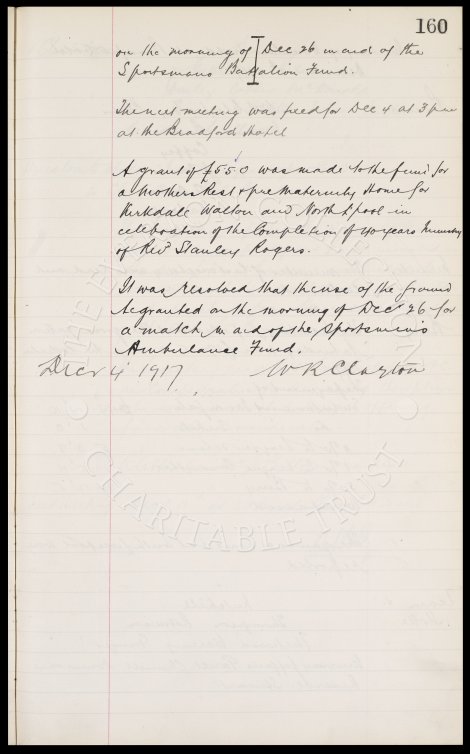 160
on the morning of Dec 26 in aid of the
Sportsmans Battalion Fund.
The next meeting was fixed for Dec 4 at 3 pm
at the Bradford Hotel
A grant of £5 5 0 was made to the fund for
a Mothers Rest & pre Maternity Home for
Kirkdale Walton and North L'pool in
celebration of the Completion of 40 years Ministry
of Revd Stanley Rogers.
It was resolved that the use of the ground
be granted on the morning of Dec 26 for
a match in aid of the Sportsmens
Ambulance Fund.
Decr 4 1917 W R Clayton
CHARITABLE TRUST